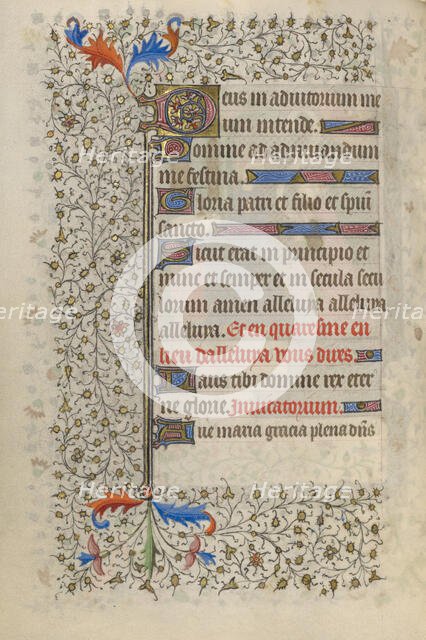 Deus in adiutorium me
um intende.
Domine ad adiuuandum
me festina.
Gloria patri et filio et spiūi
sancto.
Sicut erat in principio et
nunc et semper et in secula secu
lorum amen alleluya alleluya
alleluya. Et en quaresme en
lieu dalleluya vous dires.
Laus tibi domine rex eter
ne glorie. Inuitatorium.
Aue maria gracia plena dn̄s
Heritage Heritage
Heritage Heritage
Heritage Heritage
Images Images
©